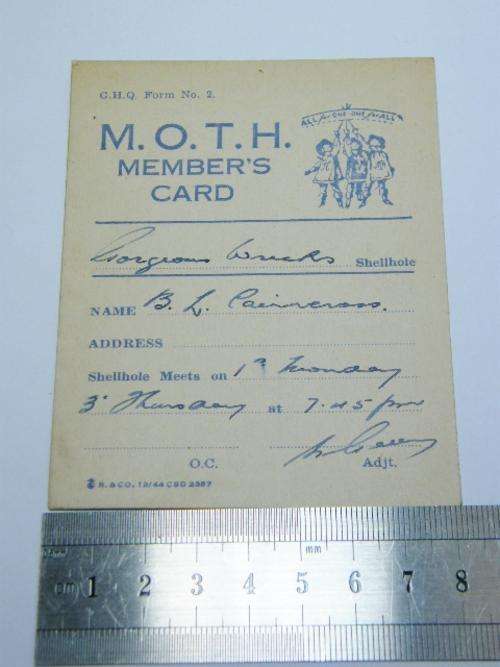 G.H.Q. Form No. 2.
ALL for ONE ONE for ALL
M.O.T.H.
MEMBER'S
CARD
Gorgeous Wrecks Shellhole
NAME B. L. Cairncross.
ADDRESS
Shellhole Meets on 1st Monday
3rd Thursday at 7.45 pm
O.C. Adjt.
R. & CO. 12/44 CSO 2387
mm
cm 1 2 3 4 5 6 7 8